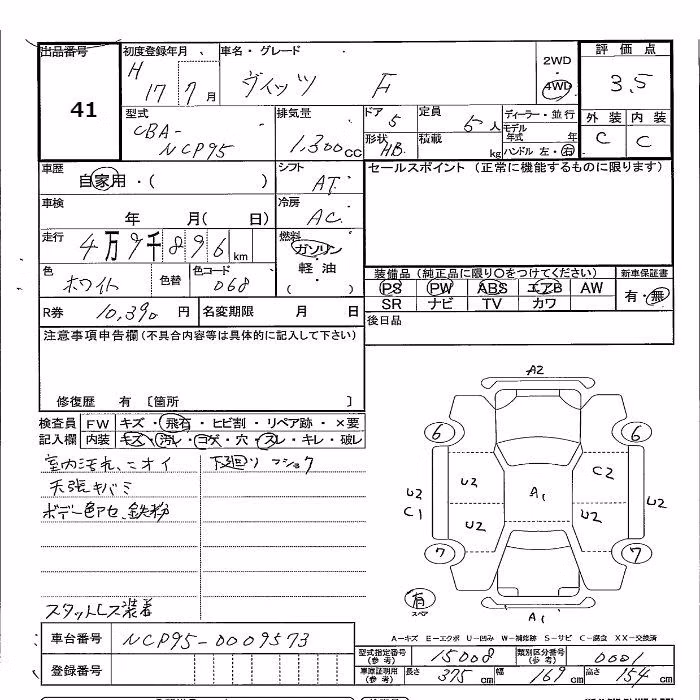 出品番号
41
初度登録年月
H 17 7 月
車名・グレード
ヴィッツ F
2WD
4WD
評価点
3.5
外装 内装
C C
型式
CBA-
NCP95
排気量
1,300cc
ドア
5
定員
5人
ディーラー・並行
モデル年式 年
ハンドル 左・右
形状
HB
積載
kg
車歴
自家用・( )
シフト
AT
セールスポイント (正常に機能するものに限ります)
車検
年 月( 日)
冷房
AC
走行
4万9千896km
燃料
ガソリン
・
軽油
( )
色
ホワイト
色替
色コード
068
装備品(純正品に限り○をつけてください)
PS PW ABS エアB AW
SR ナビ TV カワ
新車保証書
有・無
R券
10,390円
名変期限 月 日
後日品
注意事項申告欄(不具合内容等は具体的に記入して下さい)
修復歴 有〔箇所 〕
検査員記入欄
FW キズ・飛石・ヒビ割・リペア跡・×要
内装 キズ・汚レ・コゲ・穴・スレ・キレ・破レ
室内汚れ、ニオイ
下廻り フショク
天張キバミ
ボデー色アセ、鉄粉
スタットレス装着
A2
6 6
C2
U2 C1
U2
A1
U2
U2
U2
7 7
有
スペア
A1
A-キズ E-エクボ U-凹み W-補修跡 S-サビ C-腐食 XX-交換済
車台番号 NCP95-0009573
登録番号
型式指定番号(参考) 15008
類別区分番号(参考) 0001
車庫証明用(参考) 長さ 375cm 幅 169cm 高さ 154cm